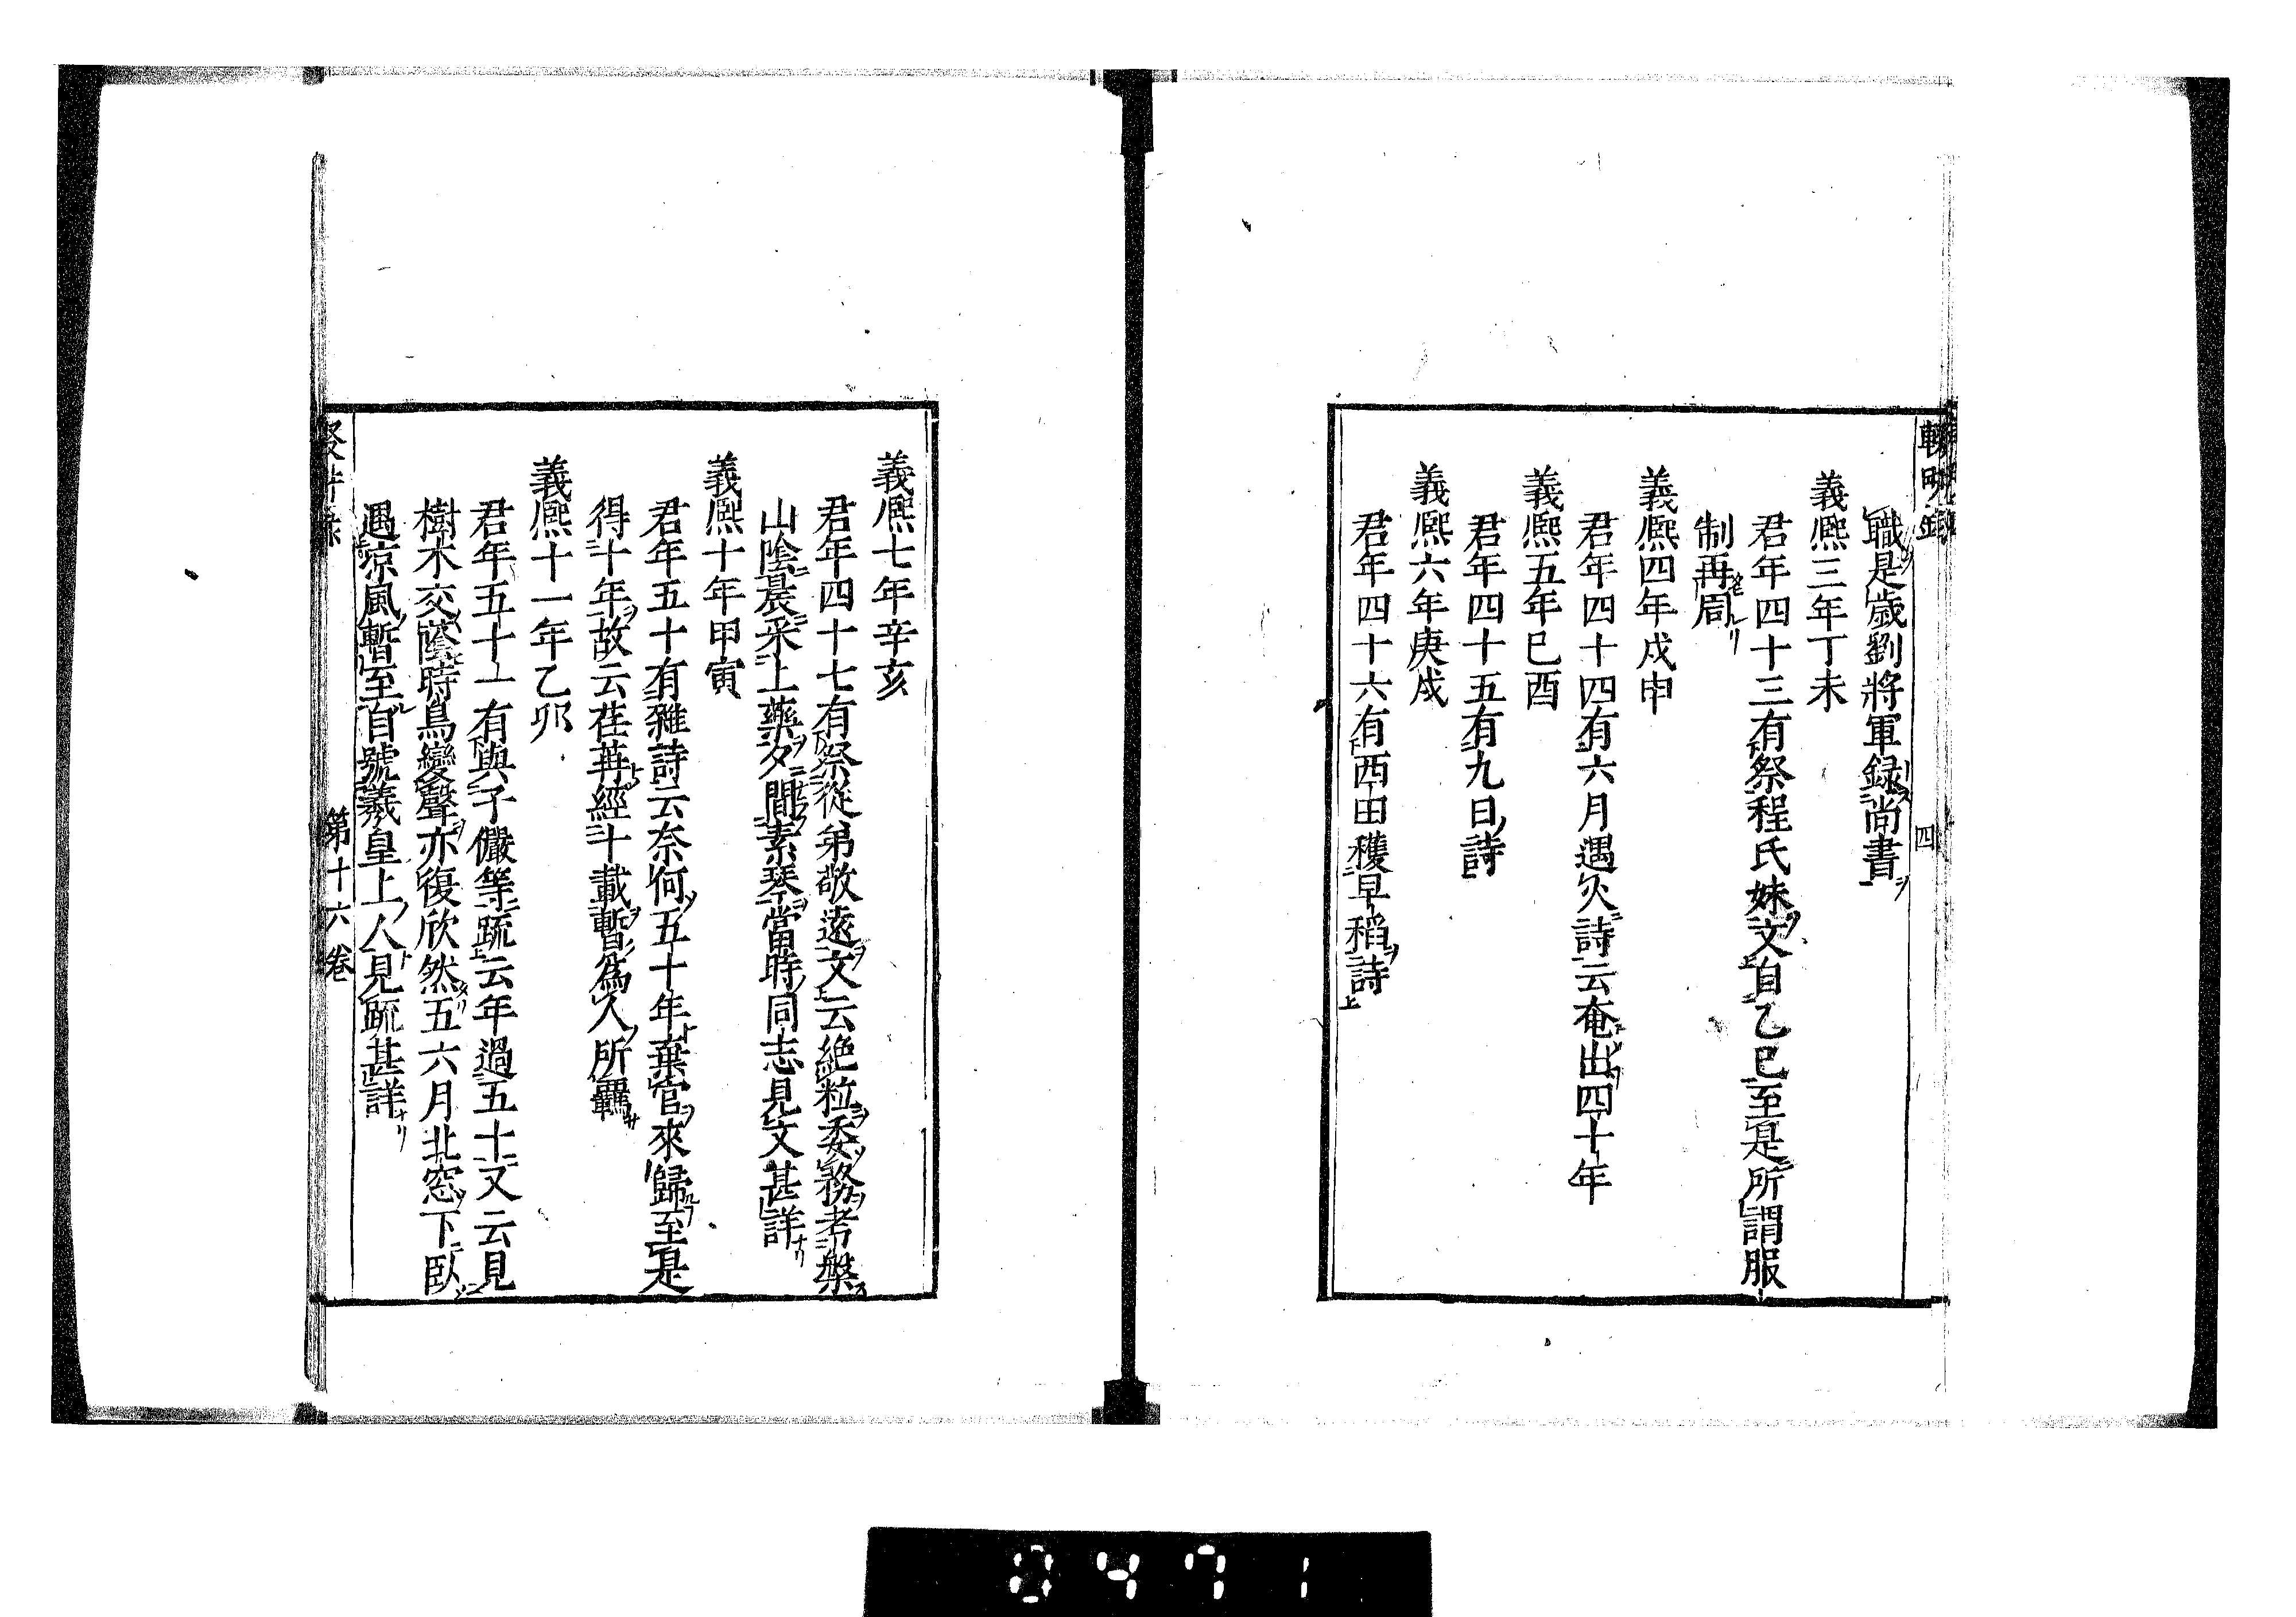 四
職是歳劉將軍録尚書
義熈三年丁未
君年四十三有祭程氏妹文自乙巳至是所謂服
制再周
義熈四年戊申
君年四十四有六月遇火詩云奄出四十年
義熈五年巳酉
君年四十五有九日詩
義熈六年庚戌
君年四十六有西田穫早稻詩
義熈七年辛亥
君年四十七有祭從弟敬遠文云絶粒委務考槃
山陰晨采上藥夕間素琴當時同志見文甚詳
義熈十年甲寅
君年五十有雜詩云奈何五十年棄官來歸至是
得十年故云荏苒經十載暫爲人所羈
義熈十一年乙卯
君年五十一有與子儼等疏云年過五十又云見
樹木交蔭時鳥變聲亦復欣然五六月北窓下臥
遇凉風暫至自號羲皇上人見疏甚詳
第十六卷
0471